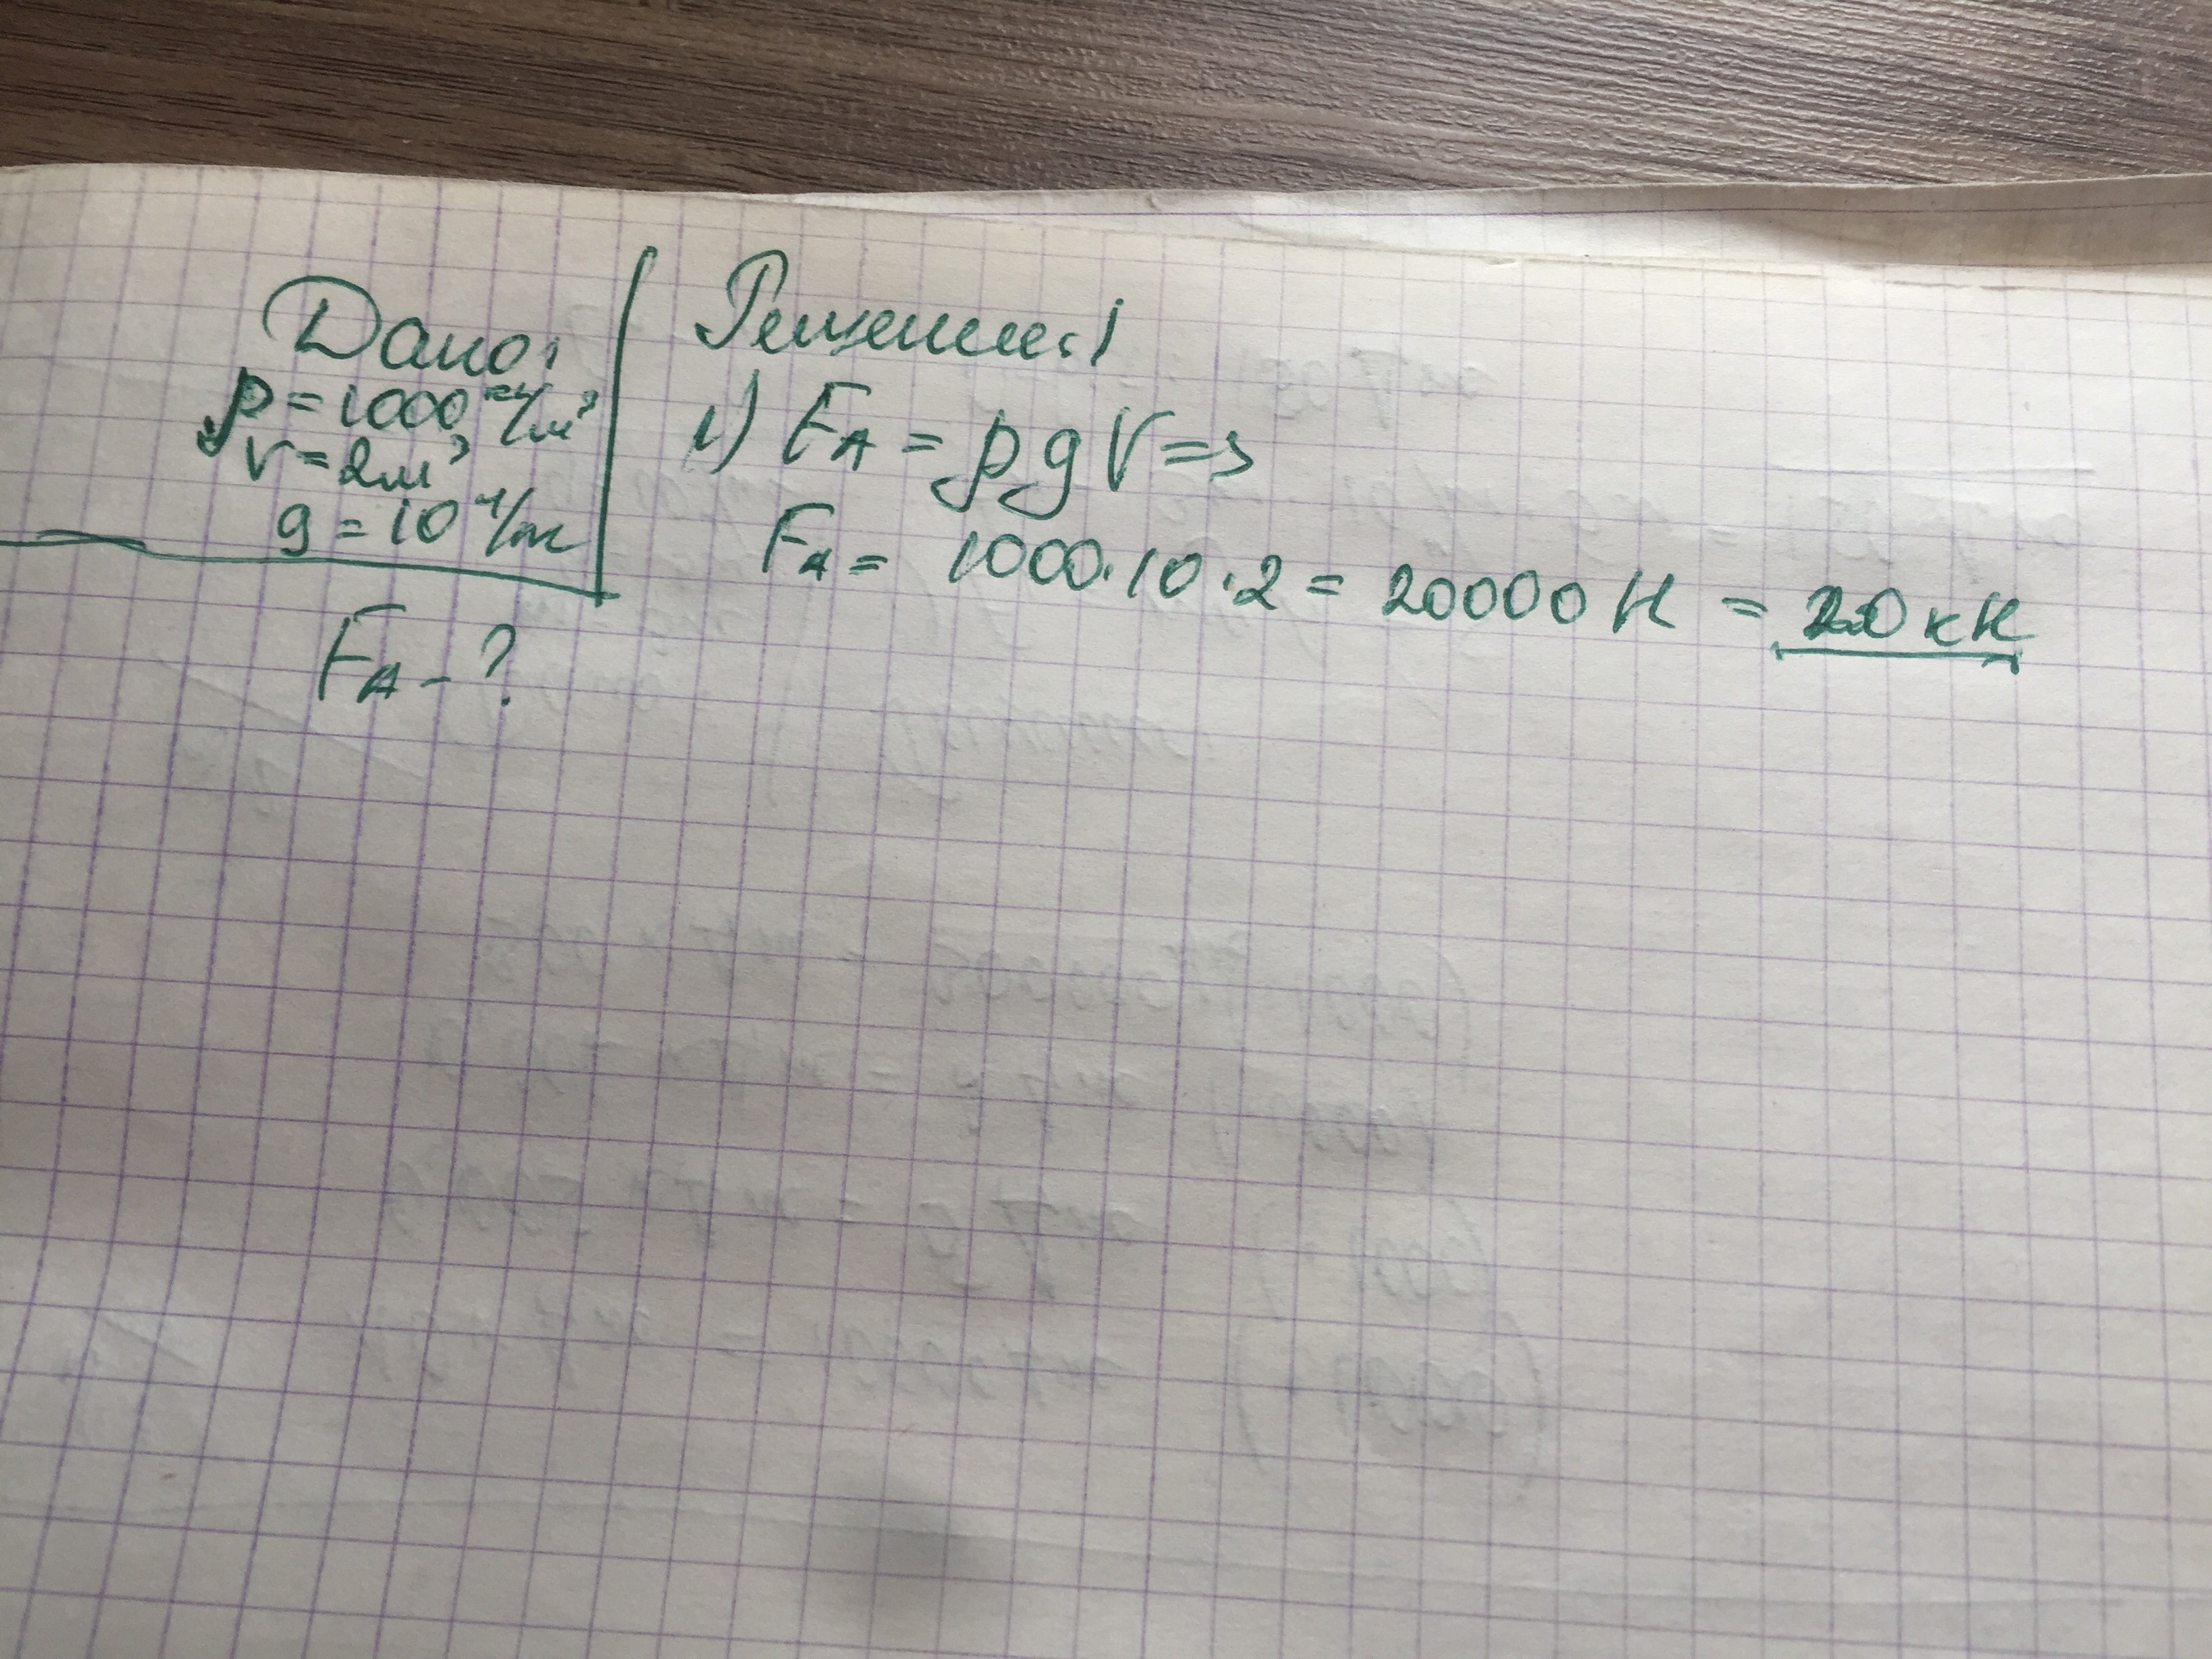 Дано:
ρ = 1000 кг/м³
V = 2м³
g = 10 Н/кг
FA - ?
Решение:
1) FA = ρgV =>
FA = 1000·10·2 = 20000 Н = 20 кН